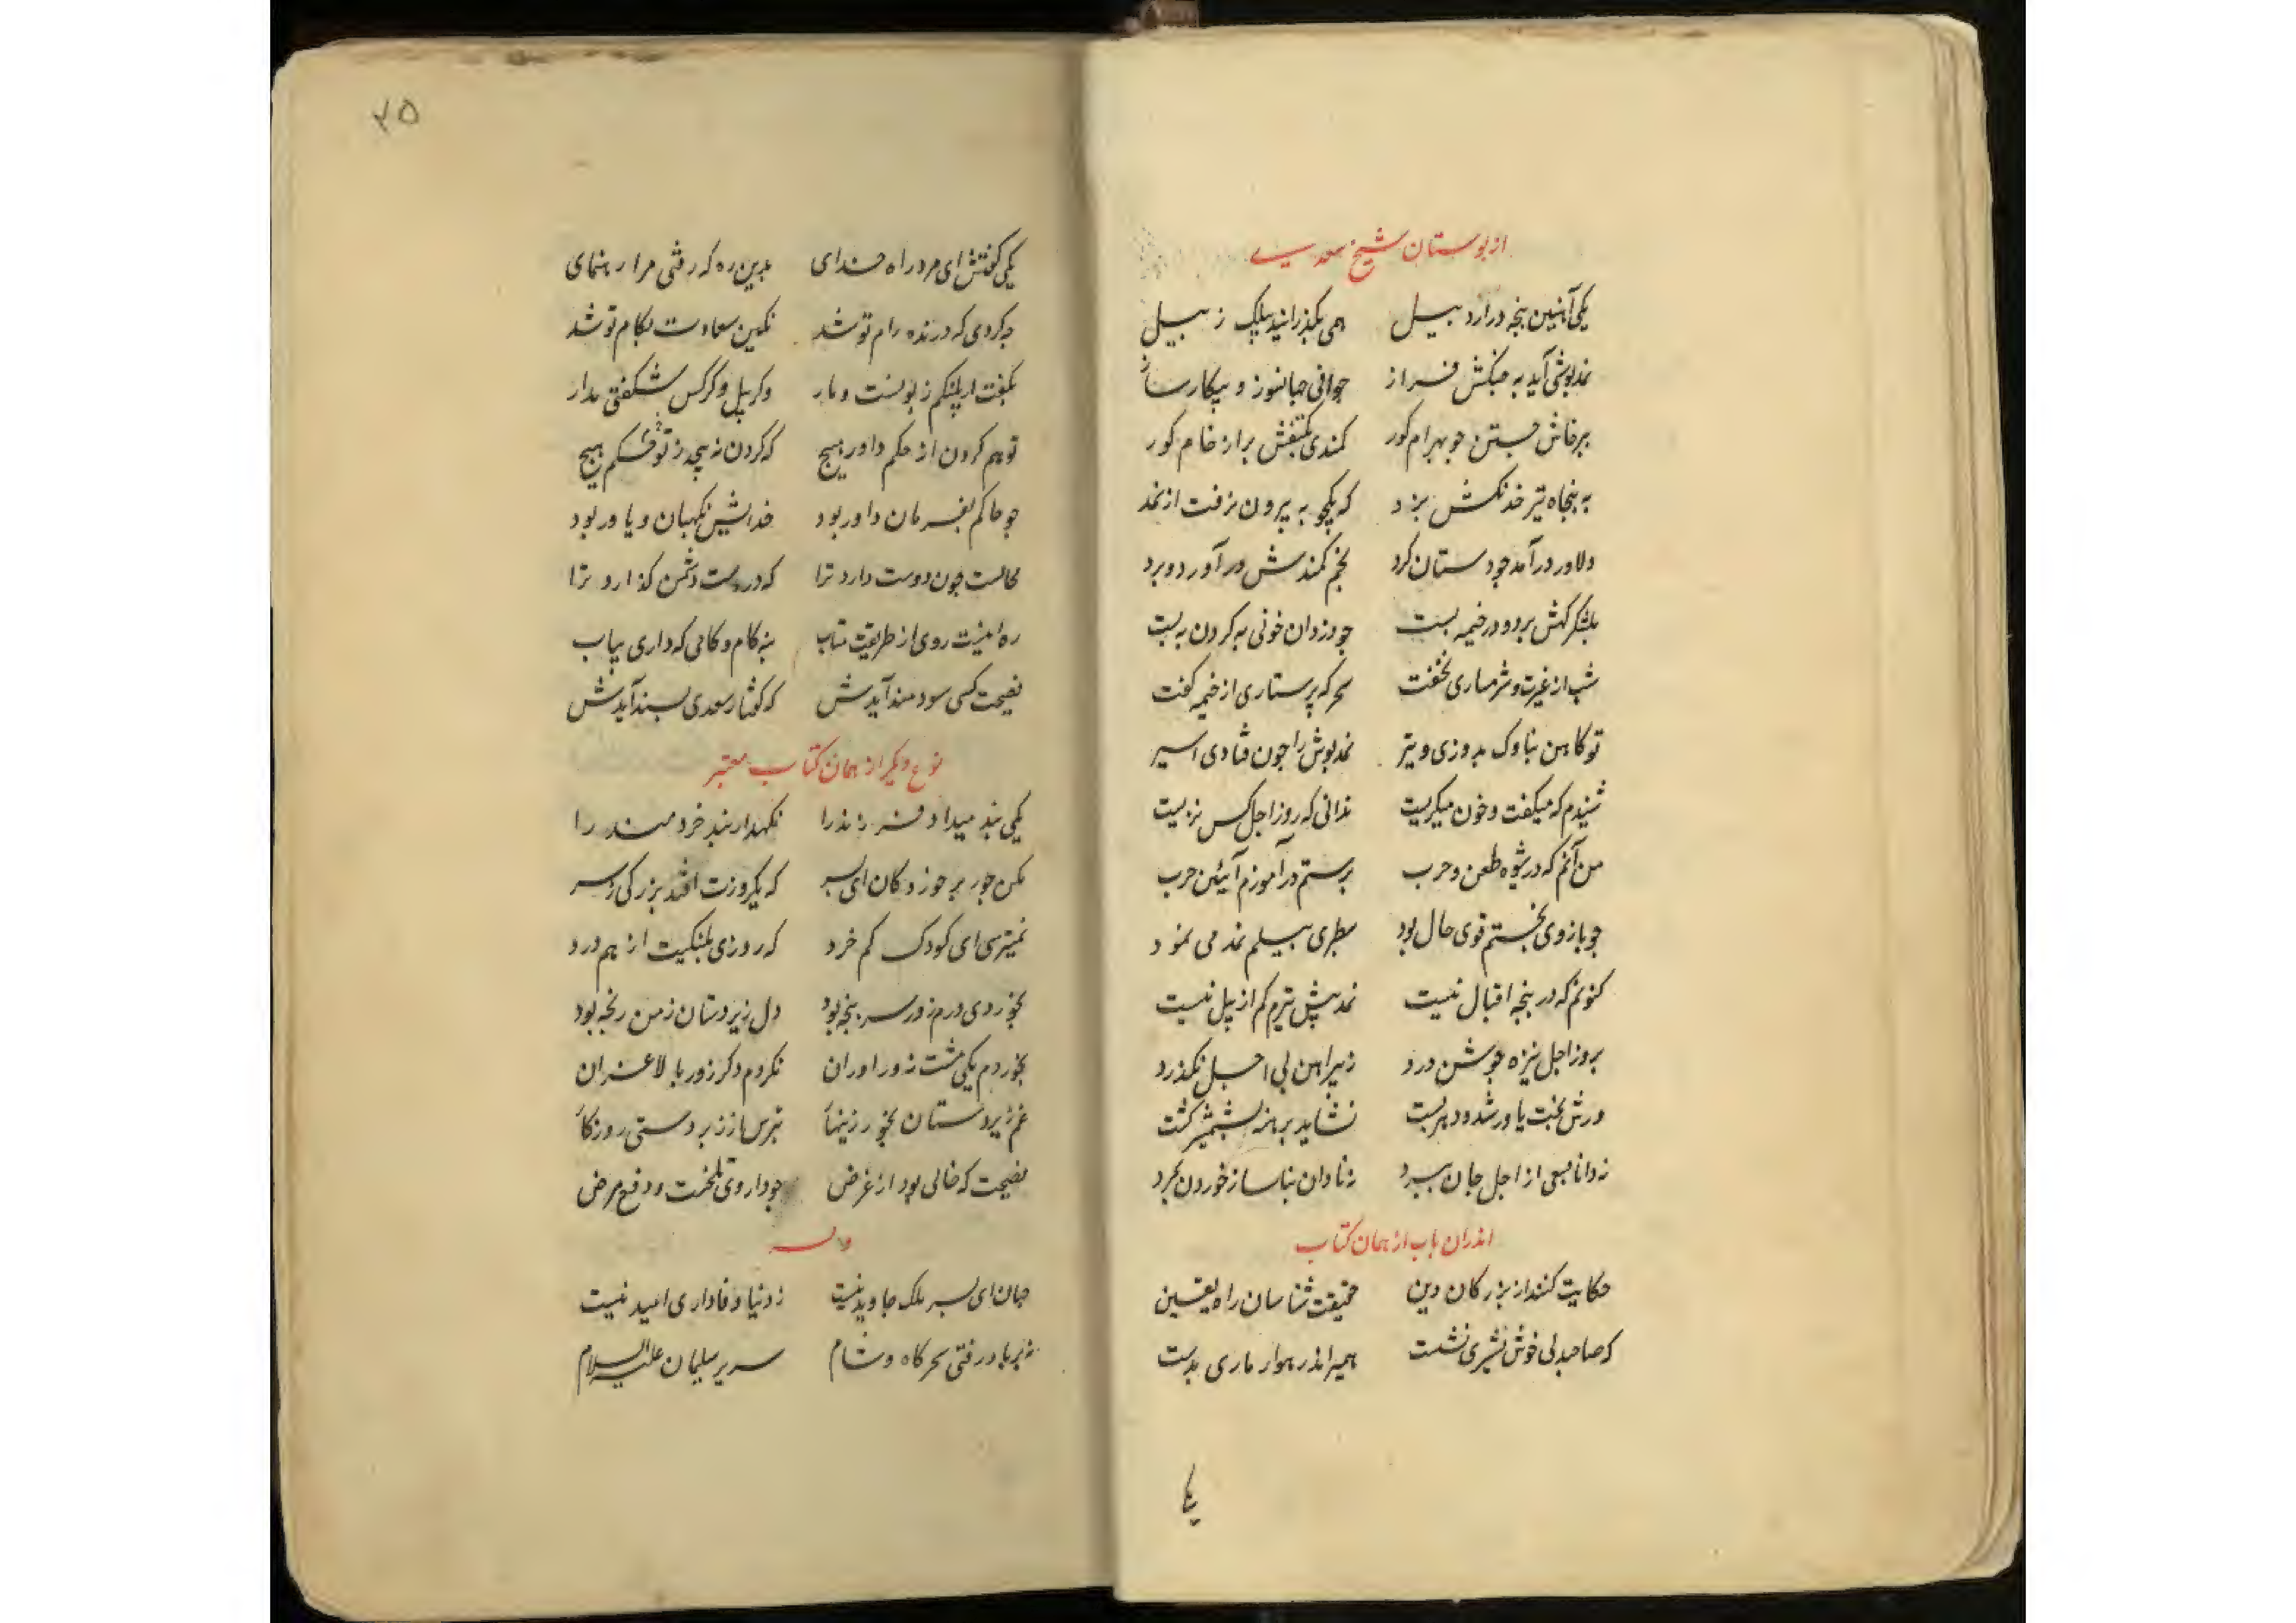 از بوستان شیخ سعدی
یکی آهنین پنجه در اردبیل همی بگذرانید بیلک ز بیل
نمدپوشی آمد به جنگش فراز جوانی جهانسوز و پیکارساز
بپرخاش جستن جو بهرام کور کمندی بکتفش بر از خام کور
به پنجاه تیر خدنکش بزد که یکچوبه بیرون نرفت از نمد
دلاور درآمد جو دستان کرد بخم کمندش درآورد و برد
بلشکرکهش برد و در خیمه بست جو دزدان خونی به کردن به بست
شب از غیرت و شرمساری نخفت سحرکه پرستاری از خیمه کفت
تو کاهن بناوک بدوزی و تیر نمدپوش را جون فتادی اسیر
شنیدم که میکفت و خون میکریست ندانی که روز اجل کس نزیست
من آنم که در شیوه طعن و حرب برستم درآموزم آیین حرب
جو بازوی بختم قوی حال بود سطبری بیلم نمد می نمود
کنونم که در پنجه اقبال نیست نمد پیش تیرم کم از پیل نیست
بروز اجل نیزه جوشن درد ز پیراهن بی اجل نکذرد
ورش بخت یاور شود دهر پشت نشاید برهنه بشمشیر کشت
نه دانا بسعی از اجل جان ببرد نه نادان بناساز خوردن بمرد
اندران باب از همان کتاب
حکایت کنند از بزرکان دین حقیقت شناسان راه یقین
که صاحبدلی خوش نشری نشست همیراند رهوار ماری بدست
یکی
۲۵
یکی کفتش ای مرد راه خدای بدین ره که رفتی مرا رهنمای
چه کردی که درنده رام تو شد نکین سعادت بکام تو شد
بکفت ار پلنکم زبونست و مار وکر پیل و کرکس شکفتی مدار
تو هم کردن از حکم داور مپیچ که کردن نپیچد ز تو حکم هیچ
جو حاکم بفرمان داور بود خدایش نکهبان و یاور بود
محالست جون دوست دارد ترا که در دست دشمن کذارد ترا
ره اینست روی از طریقت متاب بنه کام و کامی که داری بیاب
نصیحت کسی سودمند آیدش که کفتار سعدی پسند آیدش
نوع دیکر از همان کتاب معتبر
یکی پند میداد فرزند را نکهدار پند خردمند را
مکن جور بر خوردکان ای پسر که یکروزت افتد بزرکی بسر
نمیترسی ای کودک کم خرد که روزی پلنکیت از هم درد
بخوردی درم زور سرپنجه بود دل زیردستان ز من رنجه بود
بخوردم یکی مشت زوراوران نکردم دکر زور با لاغران
غم زیردستان بخور زینهار بترس از زبردستی روزکار
نصیحت که خالی بود از غرض جو داروی تلخست و دفع مرض
وله
جهان ای پسر ملک جاوید نیست ز دنیا وفاداری امید نیست
نه بر باد رفتی سحرکاه و شام سریر سلیمان علیه السلام